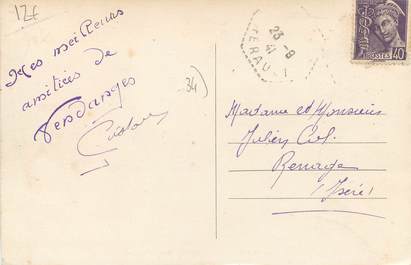 12€
Mes meilleures
amitiés de
Vendanges
34
23-8
41
HERAULT
POSTES 40
Madame et Monsieur
Julien
Renage
(Isère)